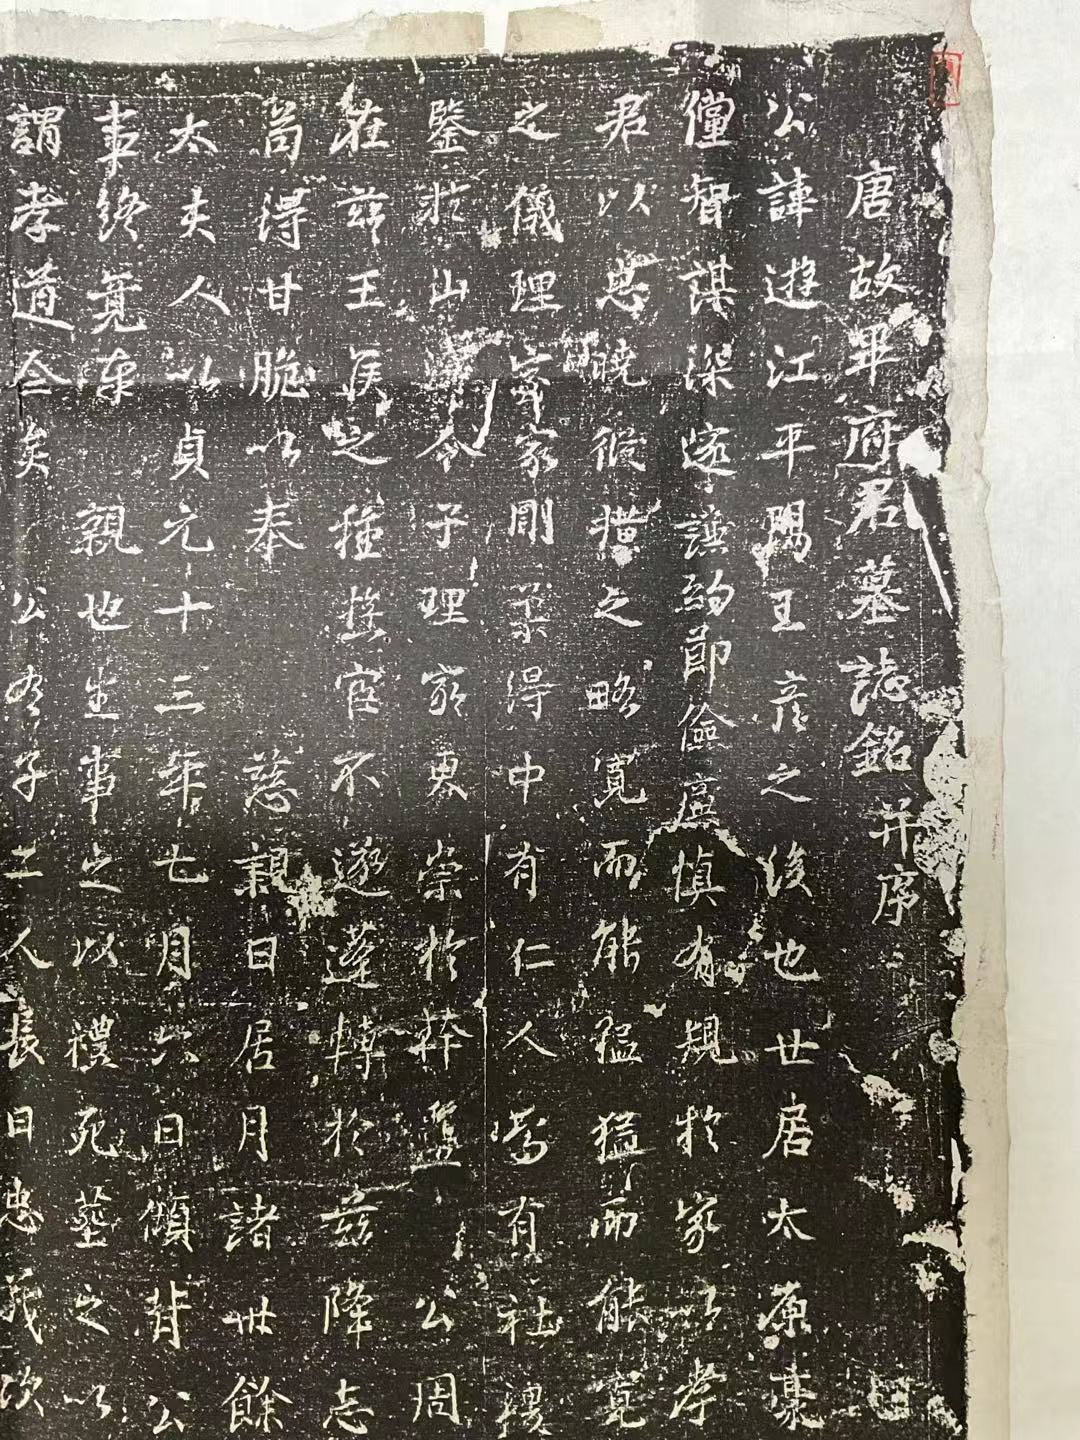 唐故畢府君墓誌銘并序
公諱遊江平陽王彦之後也世居太原豪
儻智謀深邃謙約節儉謹慎有規於家以孝
君以恩曉後之略寬而能猛猛而能寬
之儀理家剛柔得中有仁人焉有社稷
鑒於山令子理窮畀崇於幹蠱公周
莊兹王侯之種族官不遂蓬轉於兹降志
苟得甘脆以奉慈親日居月諸廿餘
太夫人以貞元十三年七月六日傾背公
事終竟奉親也生事之以禮死葬之以
謂孝道全矣公有子二人長曰忠義次